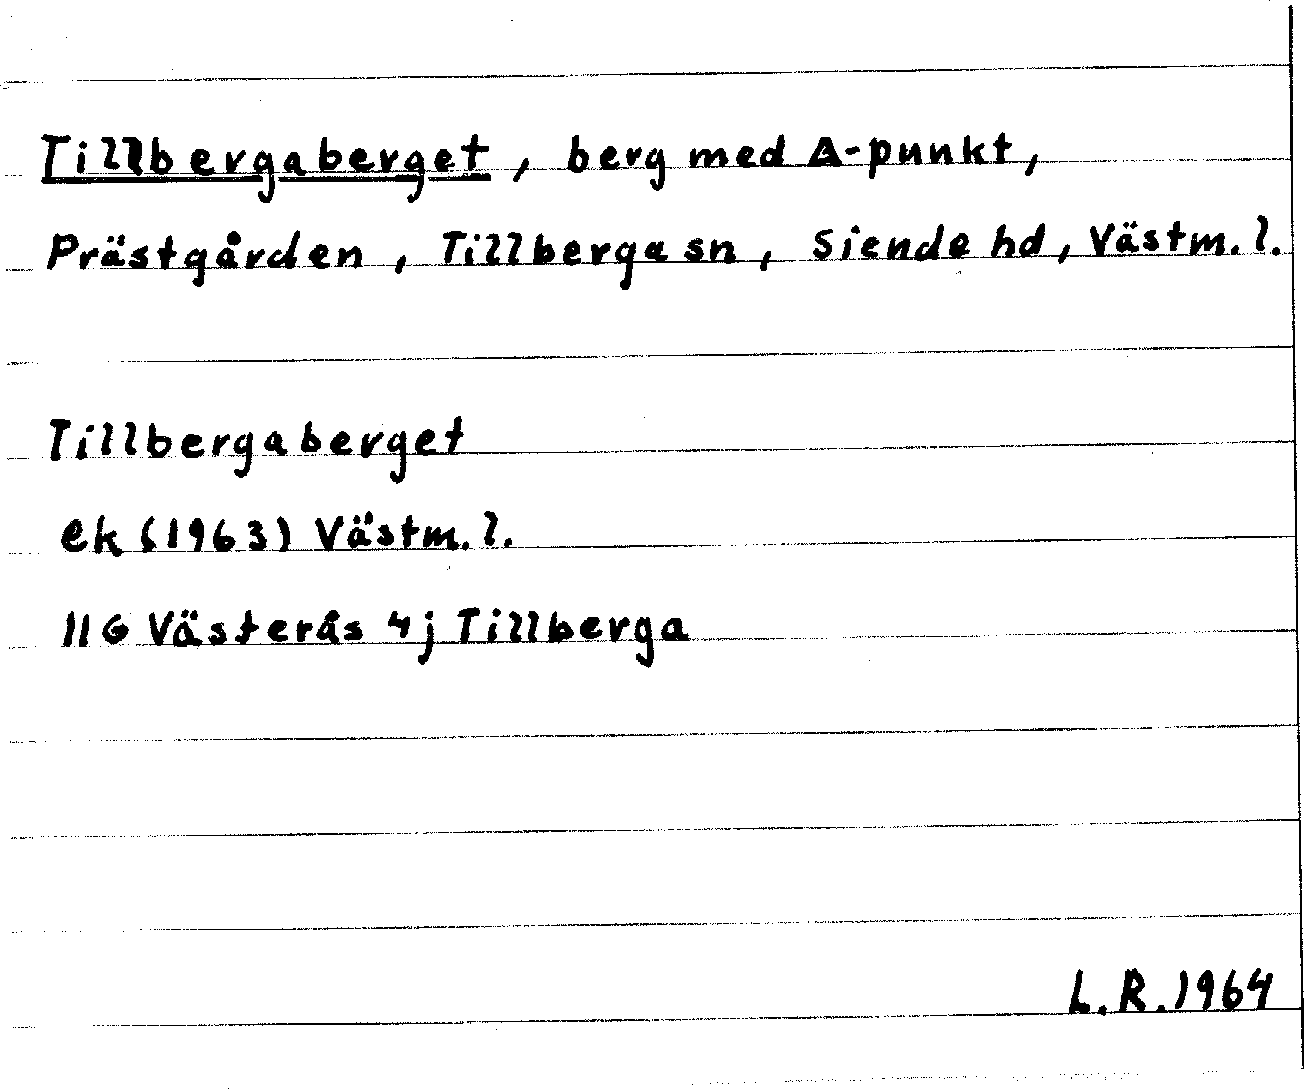 Tillbergaberget, berg med A-punkt,
Prästgården, Tillberga sn, Siende hd, Västm. l.
Tillbergaberget
ek (1963) Västm. l.
11G Västerås 4j Tillberga
L. R. 1964